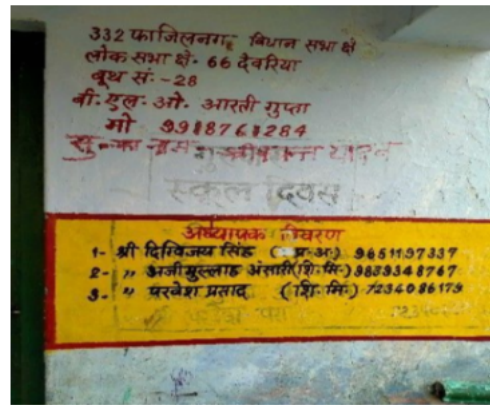 332 फाजिलनगर विधान सभा क्षे
लोक सभा क्षे. 66 देवरिया
बूथ सं.-28
बी. एल. ओ. आरती गुप्ता
मो 9918761284
यादव
स्कूल दिवस
अध्यापक विवरण
1- श्री दिग्विजय सिंह (प्र.अ.) 9651197337
2- ,, अजीमुल्लाह अंसारी (शि.मि.) 9839348767
3- ,, परवेश प्रसाद (शि.मि.) 7234086179